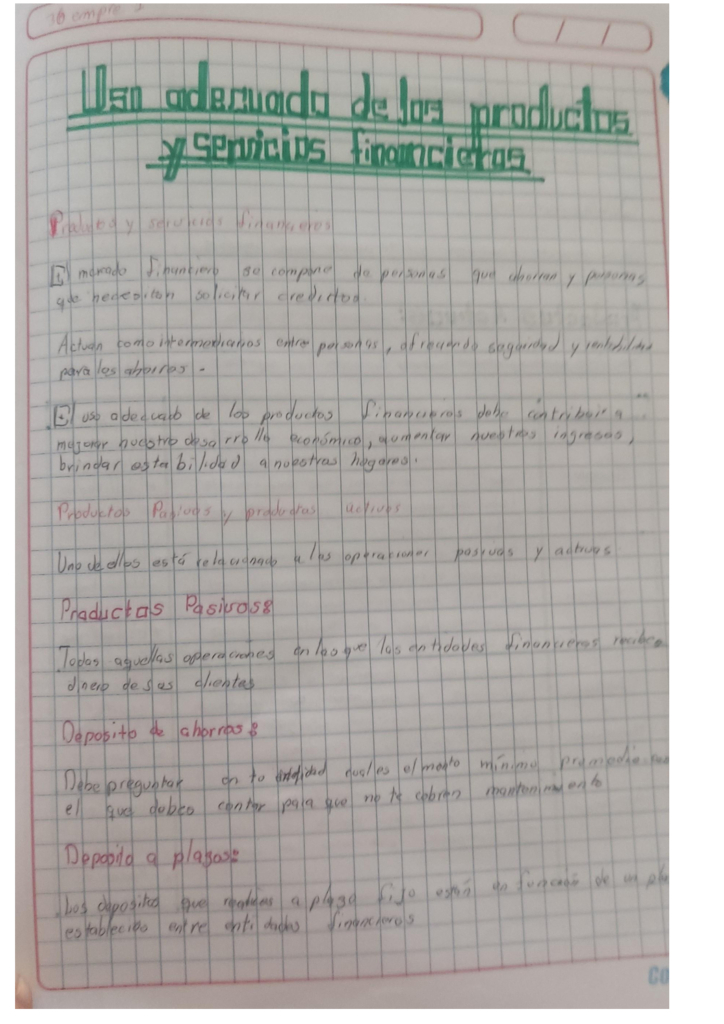 Uso adecuado de los productos
y servicios financieros
y servicios financieros
El mercado financiero se compone de personas que ahorran y personas
que necesitan solicitar creditos.
Actuan como intermediarios entre personas, ofreciendo seguridad y rentabilidad
para los ahorros.
El uso adecuado de los productos financieros debe contribuir a
mejorar nuestro desarrollo económico, aumentar nuestros ingresos,
brindar estabilidad a nuestros hogares.
Productos Pasivos y productos activos
Uno de ellos está relacionado a las operaciones pasivas y activas
Productos Pasivos:
Todas aquellas operaciones en las que las entidades financieras recibe
dinero de sus clientes
Deposito de ahorros:
Debe preguntar en tu entidad cual es el monto mínimo promedio
el que debes contar para que no te cobren mantenimiento
Deposito a plazos:
Los depositos que realizas a plazo fijo están en función de un
establecido entre entidades financieros
CO